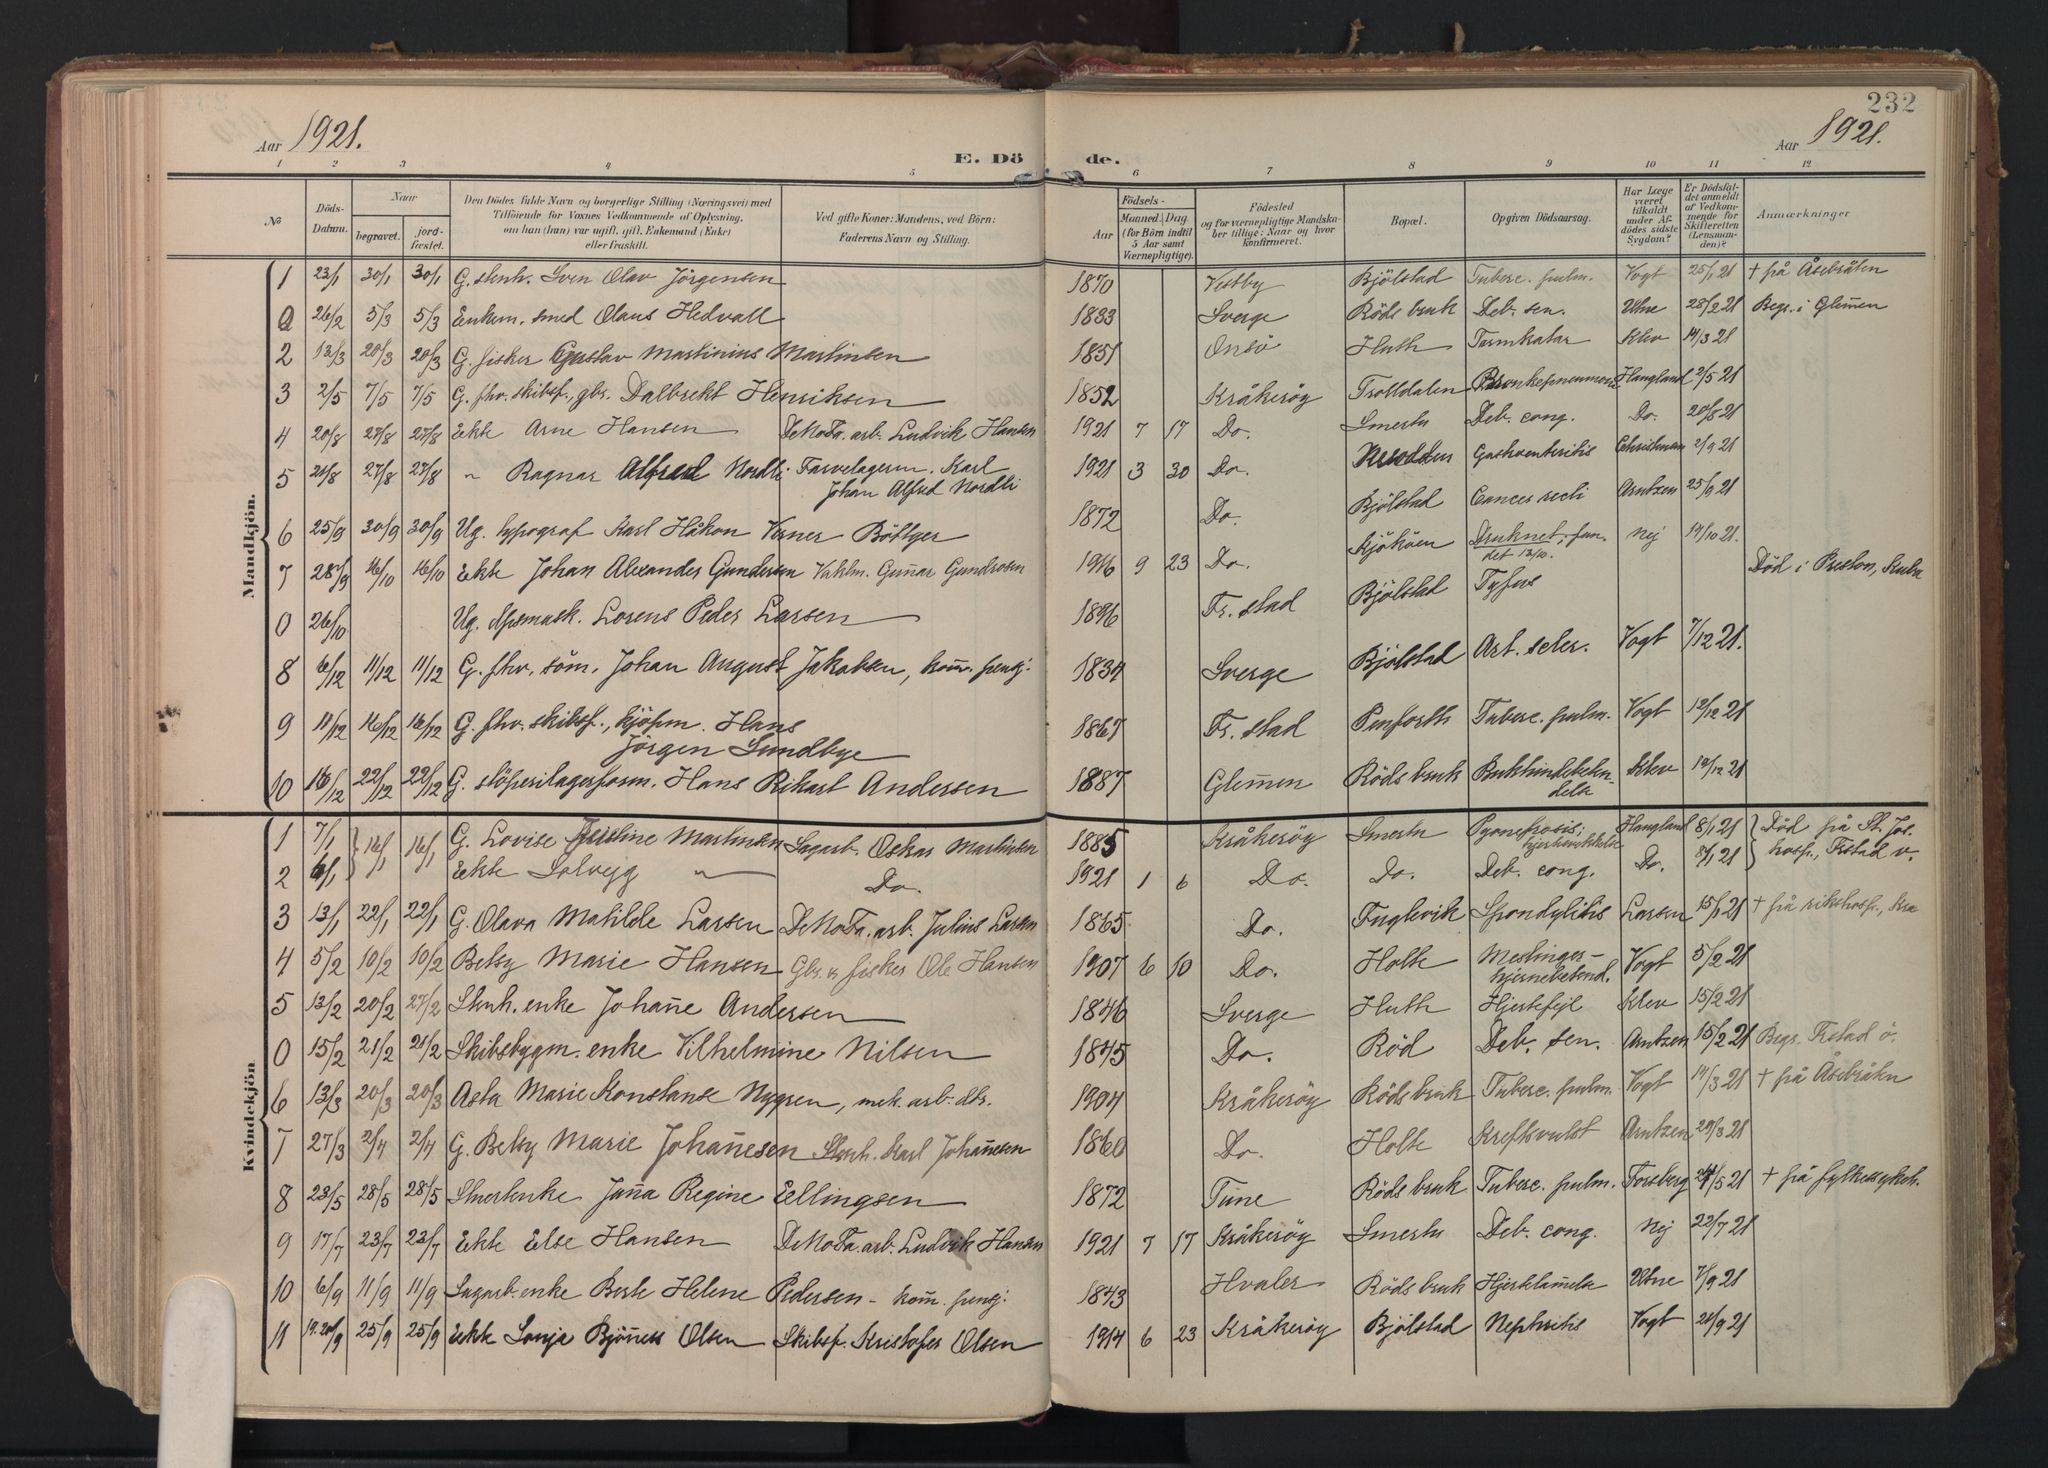 232
Aar 1921.
E. Dö de.
Aar 1921.
1 2 3 4 5 6 7 8 9 10 11 12
No Döds-Datum. Naar begravet. jordfæstet. Den Dödes fulde Navn og borgerlige Stilling (Næringsvei) med Tilföiende for Voxnes Vedkommende af Oplysning, om han (hun) var ugift, gift, Enkemand (Enke) eller fraskilt. Ved gifte Koner: Mandens, ved Börn: Faderens Navn og Stilling. Födsels- Aar Maaned. Dag. (for Börn indtil 5 Aar samt Værnepligtige). Födested og for værnepligtige Mandskaber tillige: Naar og hvor konfirmeret. Bopæl. Opgiven Dödsaarsag. Har Læge været tilkaldt under Afdödes sidste Sygdom? Er Dödsfaldet anmeldt af Vedkommende for Skifteretten (Lensmanden)? Anmærkninger
Mandkjön.
1 23/1 30/1 30/1 G. stenh. Sven Olav Jörgensen 1870 Vestby Bjölstad Tuberc. pulm. Vogt 25/1 21 + på Åsebråten
0 26/2 5/3 5/3 Enkem. smed Olaus Hedvall 1833 Sverge Röds bruk Deb. sen. Utne 28/2 21 Begr. i Glem̄en
2 12/3 20/3 20/3 G. fisker Gustav Martinius Martinsen 1851 Onsö Huth Tarmkatar Klev 14/3 21
3 2/5 7/5 7/5 G. fhv. skibsf., gbr. Dalbrekt Henriksen 1852 Kråkeröy Trolldalen Bronkopneumoni Haugland 2/5 21
4 20/8 27/8 27/8 Ekte Arne Hansen DeNoFa. arb. Ludvik Hansen 1921 7 17 Do. Smertu Deb. cong. Do. 20/8 21
5 21/8 27/8 27/8 " Ragnar Alfred Nordli Farvelagerm. Karl
Johan Alfred Nordli 1921 3 30 Do. Gastroenteritis Christensen 2/9 21
6 25/9 30/9 30/9 Ug. typograf Karl Håkon Verner Böttger 1872 Do. Bjölstad Cancer recti Arntzen 25/9 21
7 28/9 16/10 16/10 Ekte Johan Alexander Gundersen Vaktm. Gun̄ar Gundrosen 1916 9 23 Do. Kjököen Druknet, fundet 13/10. Nej 14/10 21.
0 26/10 Ug. Lorens Peder Larsen 1896 Fr. stad Bjölstad Tyfus Död i Preston, Kuba
8 6/12 11/12 11/12 G. fhv. söm. Johan August Jakobsen, kom̄. pensj. 1834 Sverge Bjölstad Art. scler. Vogt 7/12 21.
9 11/12 16/12 16/12 G. fhv. skibsf., kjöpm. Hans
Jörgen Sundbye 1867 Fr. stad Penforth Tuberc. pulm. Vogt 12/12 21
10 16/12 22/12 22/12 G. stöperilagerform. Hans Rikart Andersen 1887 Glem̄en Röds bruk Bukhindebetændelse Klev 19/12 21
Kvindekjön
1 7/1 16/1 16/1 G. Lovise Justine Martinsen Sagarb. Oskar Martinsen 1885 Kråkeröy Smertu Pyonefrosis; Haugland 8/1 21 Död på St. Jos.
2 6/1 Ekte Solveig " Do. 1921 1 6 Do. Do. Deb. cong. Do. 8/1 21 hosp., Frstad v.
3 13/1 22/1 22/1 G. Olava Matilde Larsen DeNoFa. arb. Julius Larsen 1865 Do. Fuglevik Spondylitis Larsen 15/1 21 + på rikshosp., Kra
4 5/2 10/2 10/2 Betsy Marie Hansen Gbr. & fisker Ole Hansen 1907 6 10 Do. Holte Meslinger-hjernebetend. Vogt 5/2 21
5 13/2 20/2 27/2 Stenh. enke Johan̄e Andersen 1846 Sverge Huth Hjertefejl Klev 15/2 21
0 15/2 21/2 21/2 Skibsbygm. enke Vilhelmine Nilsen 1845 Do. Röd Deb. sen. Arntzen 15/2 21 Begr. Frstad ö.
6 13/3 20/3 20/3 Asta Marie Konstanse Nygren, mek. arb. dtr. 1904 Kråkeröy Röds bruk Tuberc. pulm. Vogt 14/3 21 + på Åsebråten
7 27/3 2/4 2/4 G. Betsy Marie Johan̄esen Stenh. Karl Johan̄esen 1860 Do. Holte Kreftsvulst Arntzen 29/3 21
8 23/5 28/5 28/5 Jan̄a Regine Ellingsen 1872 Tune Röds bruk Tuberc. pulm. Forsberg 24/5 21 + på fylkessykeh.
9 17/7 23/7 23/7 Ekte Else Hansen DeNoFa. arb. Ludvik Hansen 1921 7 17 Kråkeröy Smertu Deb. cong. Nej 22/7 21
10 6/9 11/9 11/9 Sagarb. enke Berte Helene Pedersen - kom̄. pensj. 1843 Hvaler Röds bruk Hjertelam̄else Utne 7/9 21
11 19.20/9 25/9 25/9 Ekte Sonja Bjön̄ess Olsen Skibsf. Kristofer Olsen 1914 6 23 Kråkeröy Bjölstad Nephritis Vogt 21/9 21